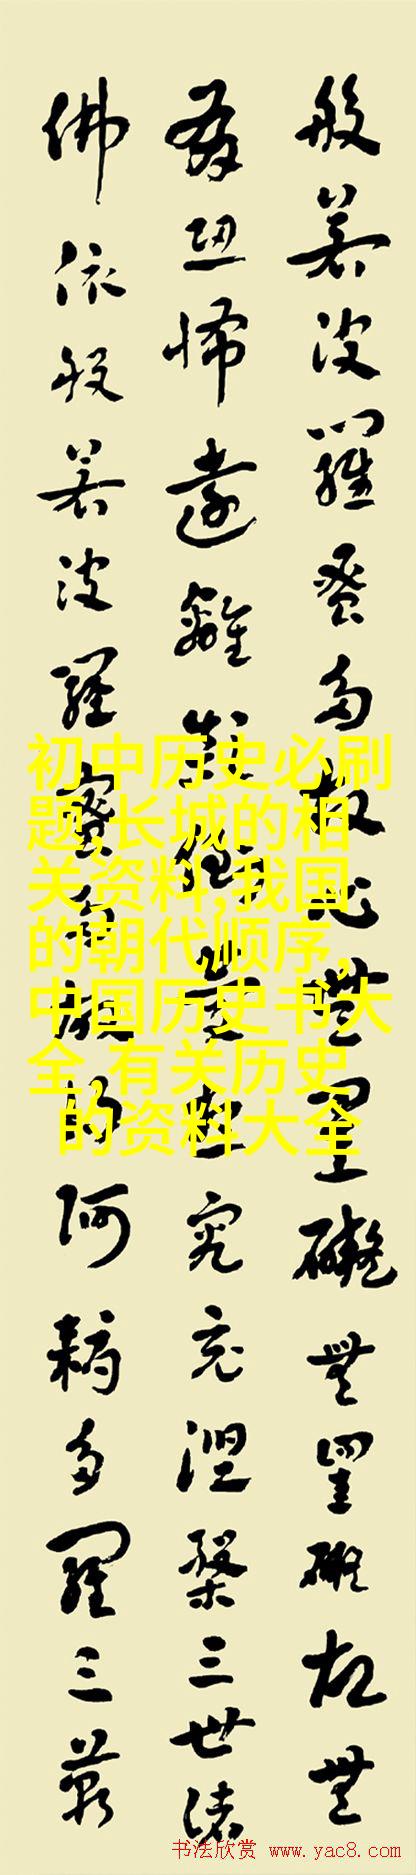 般若波羅蜜多故心無罣礙無罣礙故無
有恐怖遠離顛倒夢想究竟涅槃三世諸
佛依般若波羅蜜多故得阿耨多羅三藐
初中历史必刷
题,长城的相
关资料,我国
的朝代顺序,
中国历史书大
全,有关历史
的资料大全
书法欣赏 www.yac8.com